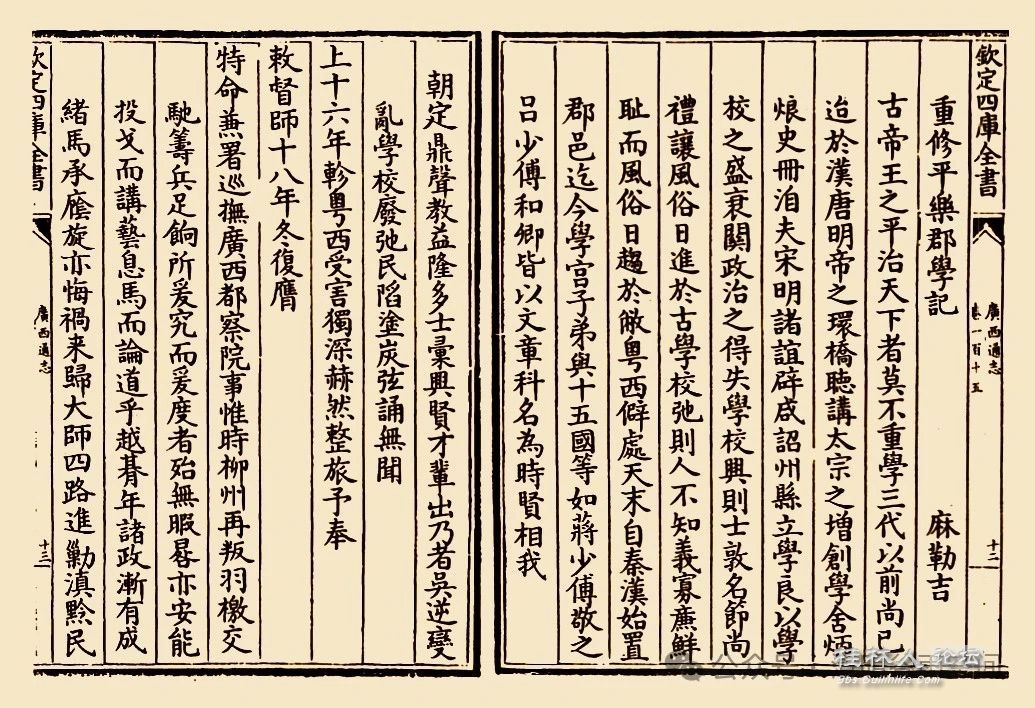 欽定四庫全書
廣西通志
卷一百十五
十二
重修平樂郡學記 麻勒吉
古帝王之平治天下者莫不重學三代以前尚已
迨於漢唐明帝之環橋聽講太宗之增創學舍炳
烺史冊洎夫宋明諸誼辟咸詔州縣立學良以學
校之盛衰關政治之得失學校興則士敦名節尚
禮讓風俗日進於古學校弛則人不知義寡亷鮮
耻而風俗日趨於敝粤西僻處天末自秦漢始置
郡邑迄今學宫子弟與十五國等如蔣少傅敬之
吕少傅和卿皆以文章科名為時賢相我
朝定鼎聲教益隆多士彚興賢才輩出乃者吳逆變
亂學校廢弛民䧟塗炭弦誦無聞
上十六年軫粤西受害獨深赫然整旅予奉
敕督師十八年冬復膺
特命兼署巡撫廣西都察院事惟時柳州再叛羽檄交
馳籌兵足餉所爰究而爰度者殆無暇晷亦安能
投戈而講藝息馬而論道乎越朞年諸政漸有成
緒馬承廕旋亦悔禍来歸大師四路進勦滇黔民
欽定四庫全書
廣西通志
十三
公众号
桂林人论坛
bbs.Guilinlife.Com